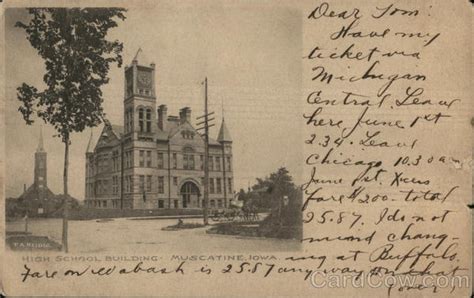 Dear Tom:
Have my
ticket via
Michigan
Central. Leave
here June 1st
2.34. Leave
Chicago 10.30am
June 1st. Xcess
fare $2.00 - total
25.87. I do not
mind chang-
ing at Buffalo.
Fare on Wabash is 25.87 any way on that
(over)
HIGH SCHOOL BUILDING - MUSCATINE, IOWA
CardCow.com